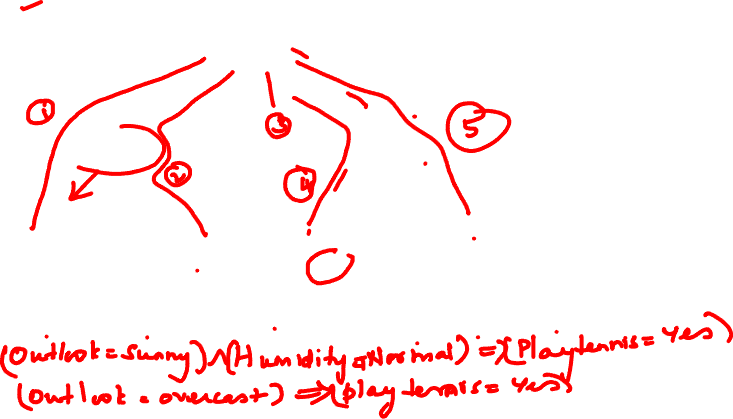 1
5
3
2
4
(Outlook = Sunny) ∧ (Humidity = Normal) ⇒ (Playtennis = Yes)
(Outlook = overcast) ⇒ (play tennis = Yes)